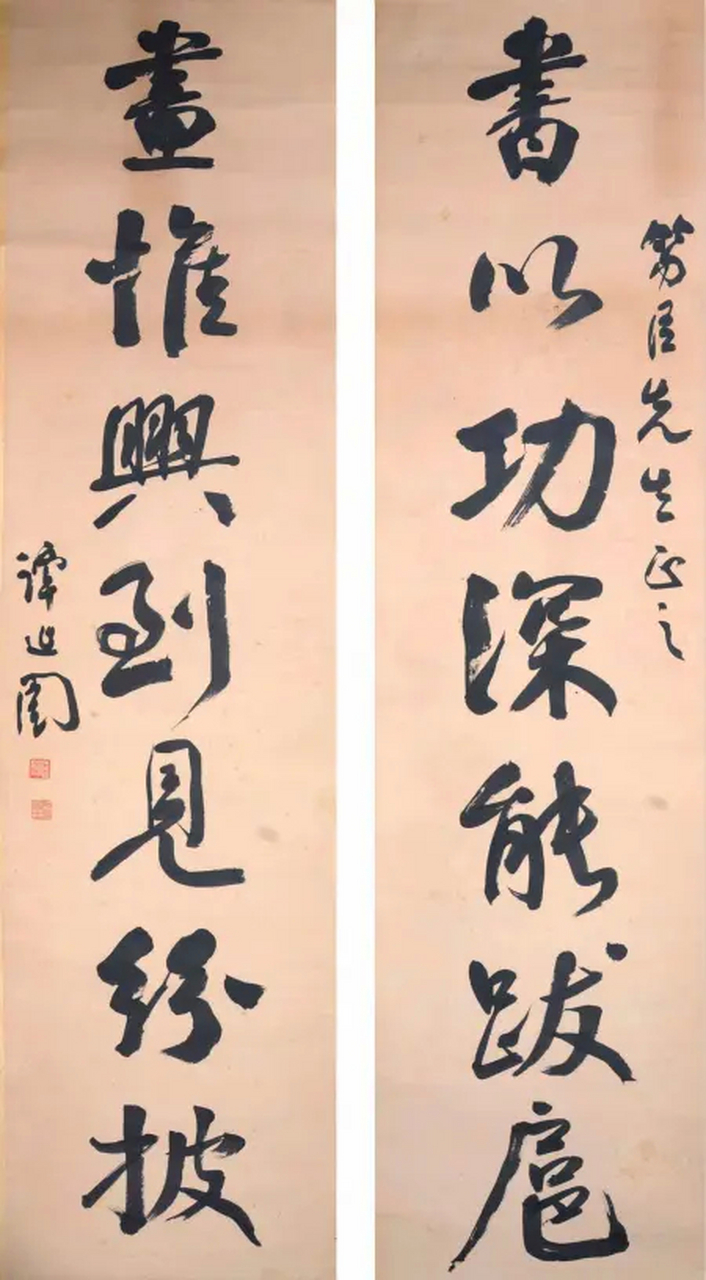 芴臣先生正之
書以功深能跋扈
畫惟興到見紛披
譚延闓